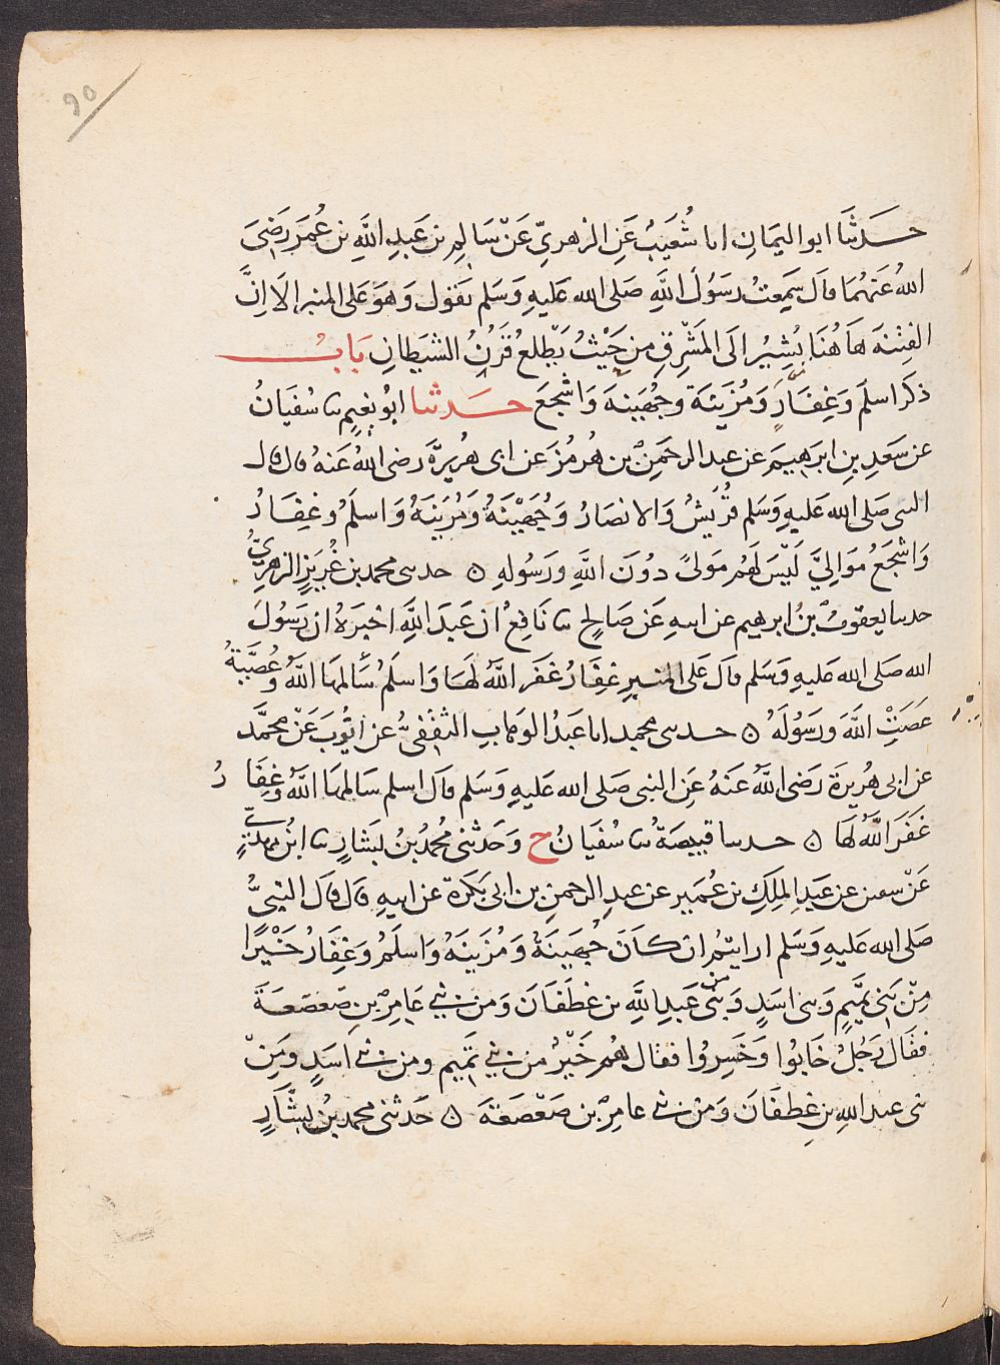 ٩٥
حَدثنَا ابو اليَمَانِ انا شُعَيبٌ عَنِ الزهريّ عَنْ سَالِمِ بن عَبدِ اللَّهِ بن عُمَرَ رَضِىَ
اللهُ عَنهُمَا قاَل سَمِعتُ رَسُولَ اللَّهِ صَلى الله عَليهِ وَسَلم يَقول وَهوَ عَلى المنبر الَا اِنَّ
الفِتنَه هَا هُنَا يُشِيرُ الَى المَشرِقِ مِن حَيْثُ يَطلعُ قَرْنُ الشيَطانِ بَابُ
ذكر اسلَم وَغِفَارَ وَمُزَينَة وجُهَينَه وَاشجَعَ حَدثنا ابوُ نعَيمٍ نا سُفيَانُ
عن سَعدِ بنِ ابرَهِيمَ عن عبد الرحمَنِ بن هُرمُزَ عن ابى هُريرَة رضى اللهُ عَنهُ قال قال
النبى صَلى الله عَليهِ وَسَلم قُرَيشٌ وَالانصَارُ وَجُهَيْنَةُ وَمُزَينَهُ وَاسلَمُ وغِفَارُ
وَاشجَعُ مَوَالِيَّ لَيْسَ لَهُم مَولىً دُونَ اللَّهِ ورَسُولهِ ه حدثنى محمد بن غُرَيرٍ الزهرِيُّ
حدثنا يعقوبُ بنُ ابرهيم عن ابيهِ عَن صَالحٍ نا نَافِعٌ ان عَبدَ اللَّهِ اخبَرَهُ ان رَسُولَ
الله صَلى الله عَليهِ وَسَلم قاَل عَلى المنبرِ غِفَارُ غَفَر اللَّهُ لهَا وَاسلَمُ سَالمهَا اللَّهُ وَعُصَيَّةُ
عَصَتِ اللَّهَ ورَسُولَهُ ه حدثنى محمد انا عَبدُ الوهابِ الثقَفىُّ عن ايُّوبَ عَن محمَّد
عن ابى هُريرَة رَضى اللَّهُ عَنهُ عَنِ النبى صَلى الله عَليهِ وَسَلم قاَل اسلم سَالمهَا اللَّهُ وَغِفَارُ
غَفَرَ اللَّهُ لهَا ه حدثنا قبيصَةُ نا سُفيَانُ ح وَحَدثنى مُحمدُ بنُ بَشارٍ نا ابنُ مهدىٍّ
عَنْ سفين عن عَبدِ المَلِكِ بن عُمَيرٍ عن عبدِ الرحمنِ بن ابى بَكرَة عن ابيهِ قال قاَل النبىُّ
صَلى الله عَليهِ وَسَلم ارايتم ان كانَ جُهَينَةُ وَمُزَينَهُ وَاسلَمُ وَغِفَارُ خَيْرًا
مِنْ بَنى تَميمٍ وَبنى اسَدٍ وَمن بنى عَبدِ اللَّهِ بن غطَفَانَ وَمن بنى عَامِرِ بنِ صَعصَعَةَ
فقَالَ رَجُلٌ خَابوُا وَخَسِروُا فقال هُم خَيْرٌ من بنى تَميمٍ ومن بنى اسَدٍ ومَِنْ
بنى عبد اللهِ بن غِطفَانَ وَمن بنى عامِرِ بن صَعْصَعَةَ ه حَدثنى محمد بنُ بشَّارٍ